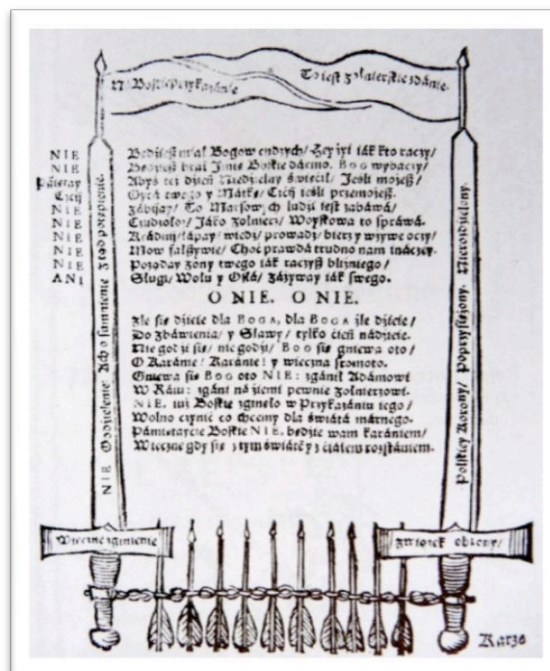 Na Boskie przykazanie To iest żołnierskie zdanie.
NIE Będziesz miał Bogow cudzych/ Żey żyi iák kto raczy/
NIE Będziesz brał Imię Boskie dármo. BOG wybaczy/
Pámiętay Abyś też dzień Niedzielny święcił/ Jeśli możesz/
Czcij Oycá twego y Mátkę/ Czcij ieśli przemożesz.
NIE Zábijay/ To Marsowych ludzi iest zabáwá/
NIE Cudzołoż/ Jáko żołnierz/ Woyskowa to spráwá.
NIE Krádnij/łápay/ wiedź/ prowadź/ bierz y wyrwe oczy/
NIE Mow fałszywie/ Choć prawdá trudno nam ináczey.
NIE Pożąday żony twego iák raczyß bliźniego/
ANI Sługi/ Wołu y Osłá/ záżyway iák swego.
O NIE. O NIE.
Źle się dzieie dla BOGA, dla BOGA źle dzieie/
Do zbáwienia/ y Sławy/ tylko cień nádzieie.
Nie godzi się/ nie godzi/ BOG się gniewa oto/
O Karánie! Karánie! y wieczna sromoto.
Gniewa się BOG oto NIE: zgánił Adámowi
W Ráiu: zgáni ná ziemi pewnie żołnierzowi.
NIE, iuż Boskie zginęło w Przykazániu iego/
Wolno czynić co chcemy dla świátá márnego.
Pámiętaycie Boskie NIE, będzie wam karániem/
Wieczne gdy się z tym świátem y z ciałem rozstániem.
NIE Oddzielenie
Polskiey Korony/ Poprzysiężony. Nierozdzielony.
Wieczne zginienie
Związek obłczny/